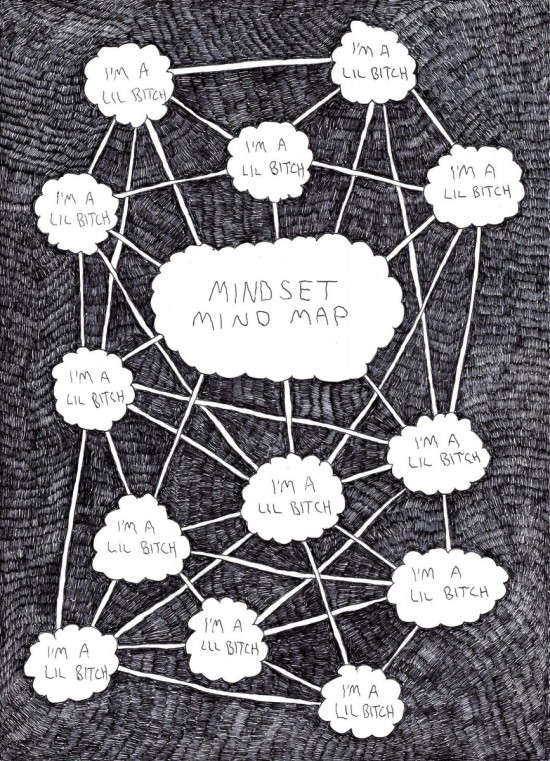 I'M A
LIL BITCH
I'M A
LIL BITCH
I'M A
LIL BITCH
I'M A
LIL BITCH
I'M A
LIL BITCH
MINDSET
MIND MAP
I'M A
LIL BITCH
I'M A
LIL BITCH
I'M A
LIL BITCH
I'M A
LIL BITCH
I'M A
LIL BITCH
I'M A
LIL BITCH
I'M A
LIL BITCH
I'M A
LIL BITCH